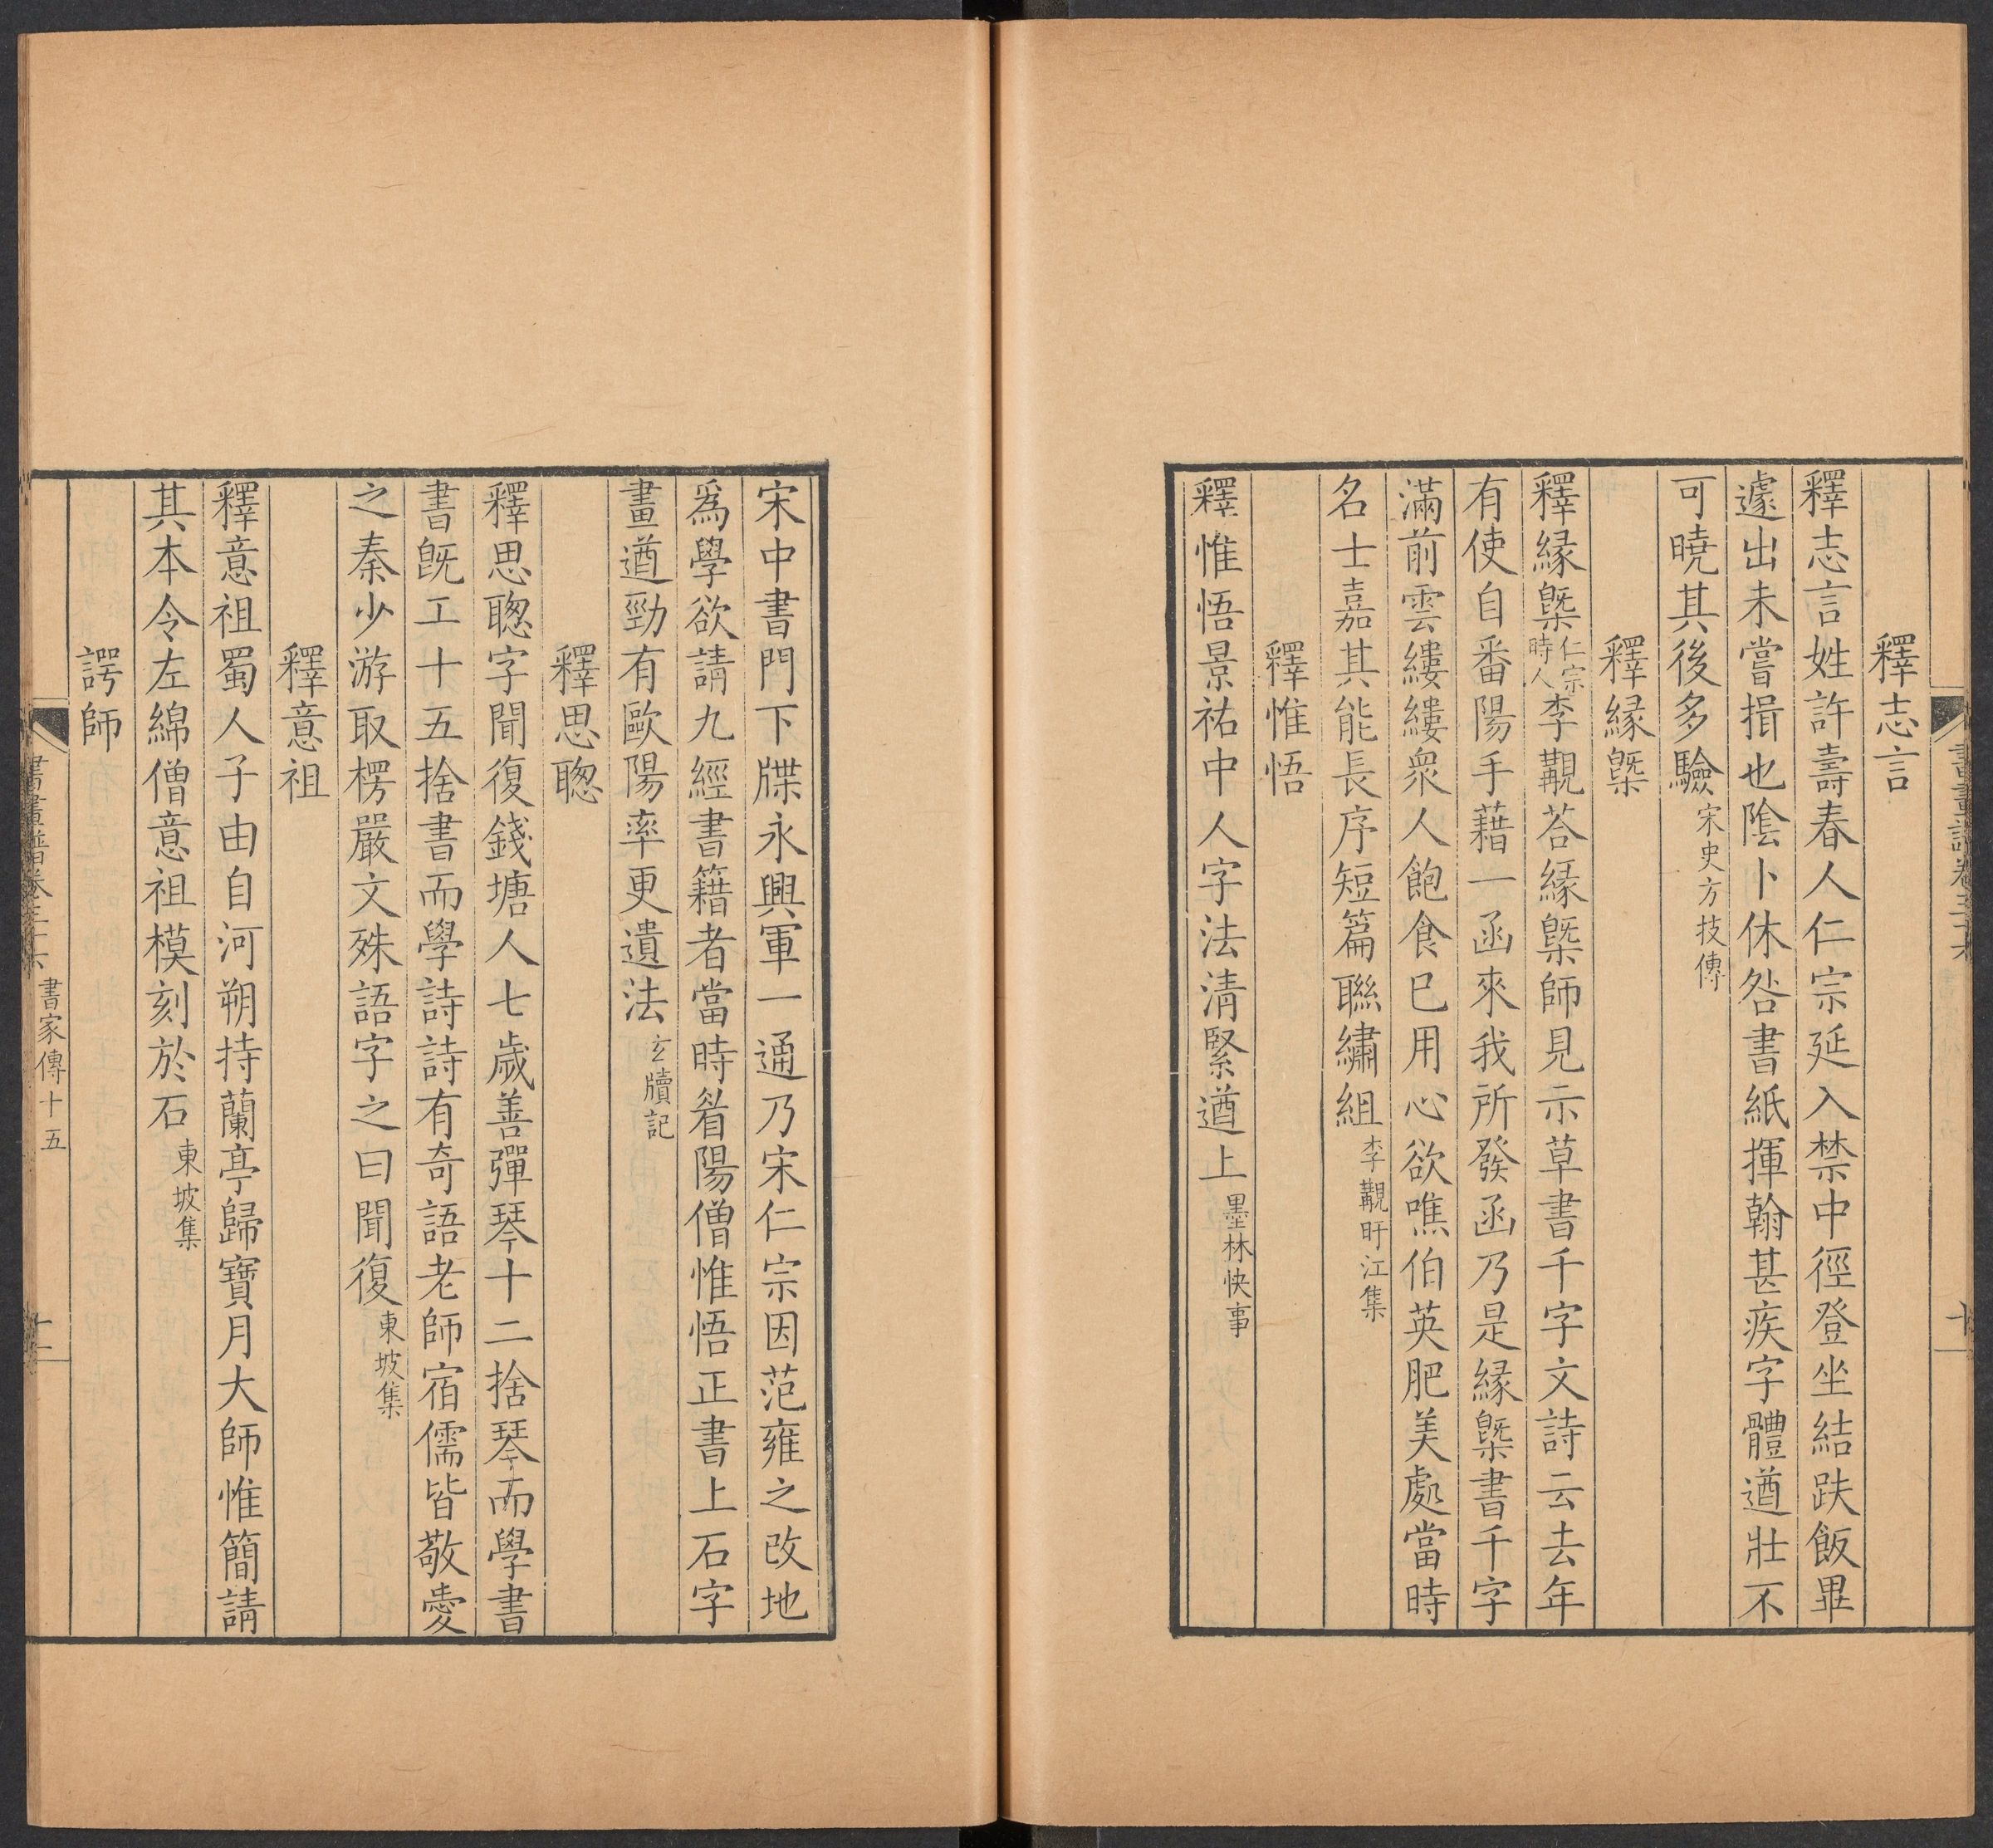 釋志言
釋志言姓許壽春人仁宗延入禁中徑登坐結趺飯畢
遽出未嘗揖也陰卜休咎書紙揮翰甚疾字體遒壯不
可曉其後多驗宋史方技傳
釋緣槩
釋緣槩仁宗時人李覯荅緣槩師見示草書千字文詩云去年
有使自番陽手藉一函來我所發函乃是緣槩書千字
滿前雲縷縷衆人飽食已用心欲噍伯英肥美處當時
名士嘉其能長序短篇聯繡組李覯旴江集
釋惟悟
釋惟悟景祐中人字法清緊遒上墨林快事
宋中書門下牒永興軍一通乃宋仁宗因范雍之改地
爲學欲請九經書籍者當時省陽僧惟悟正書上石字
畫遒勁有歐陽率更遺法玄牘記
釋思聰
釋思聰字聞復錢塘人七歲善彈琴十二捨琴而學書
書旣工十五捨書而學詩詩有奇語老師宿儒皆敬愛
之秦少游取楞嚴文殊語字之曰聞復東坡集
釋意祖
釋意祖蜀人子由自河朔持蘭亭歸寶月大師惟簡請
其本令左綿僧意祖模刻於石東坡集
諤師
書畫譜卷三十六 書家傳十五